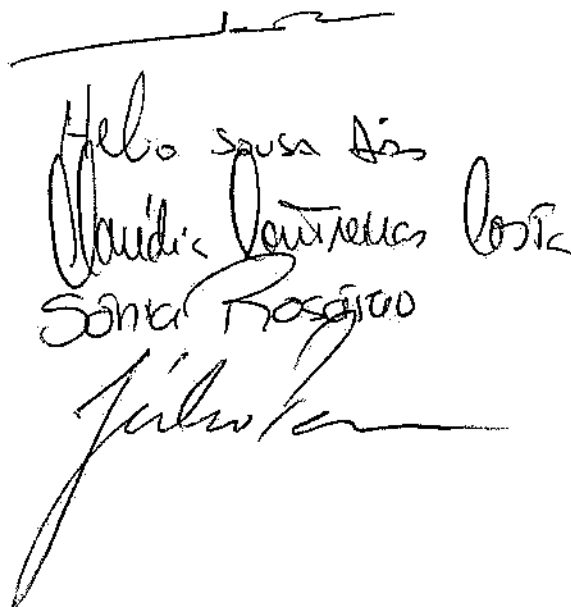 Helio Sousa Dias
Cláudia Contreiras Costa
Sónia Rosário
Júlio